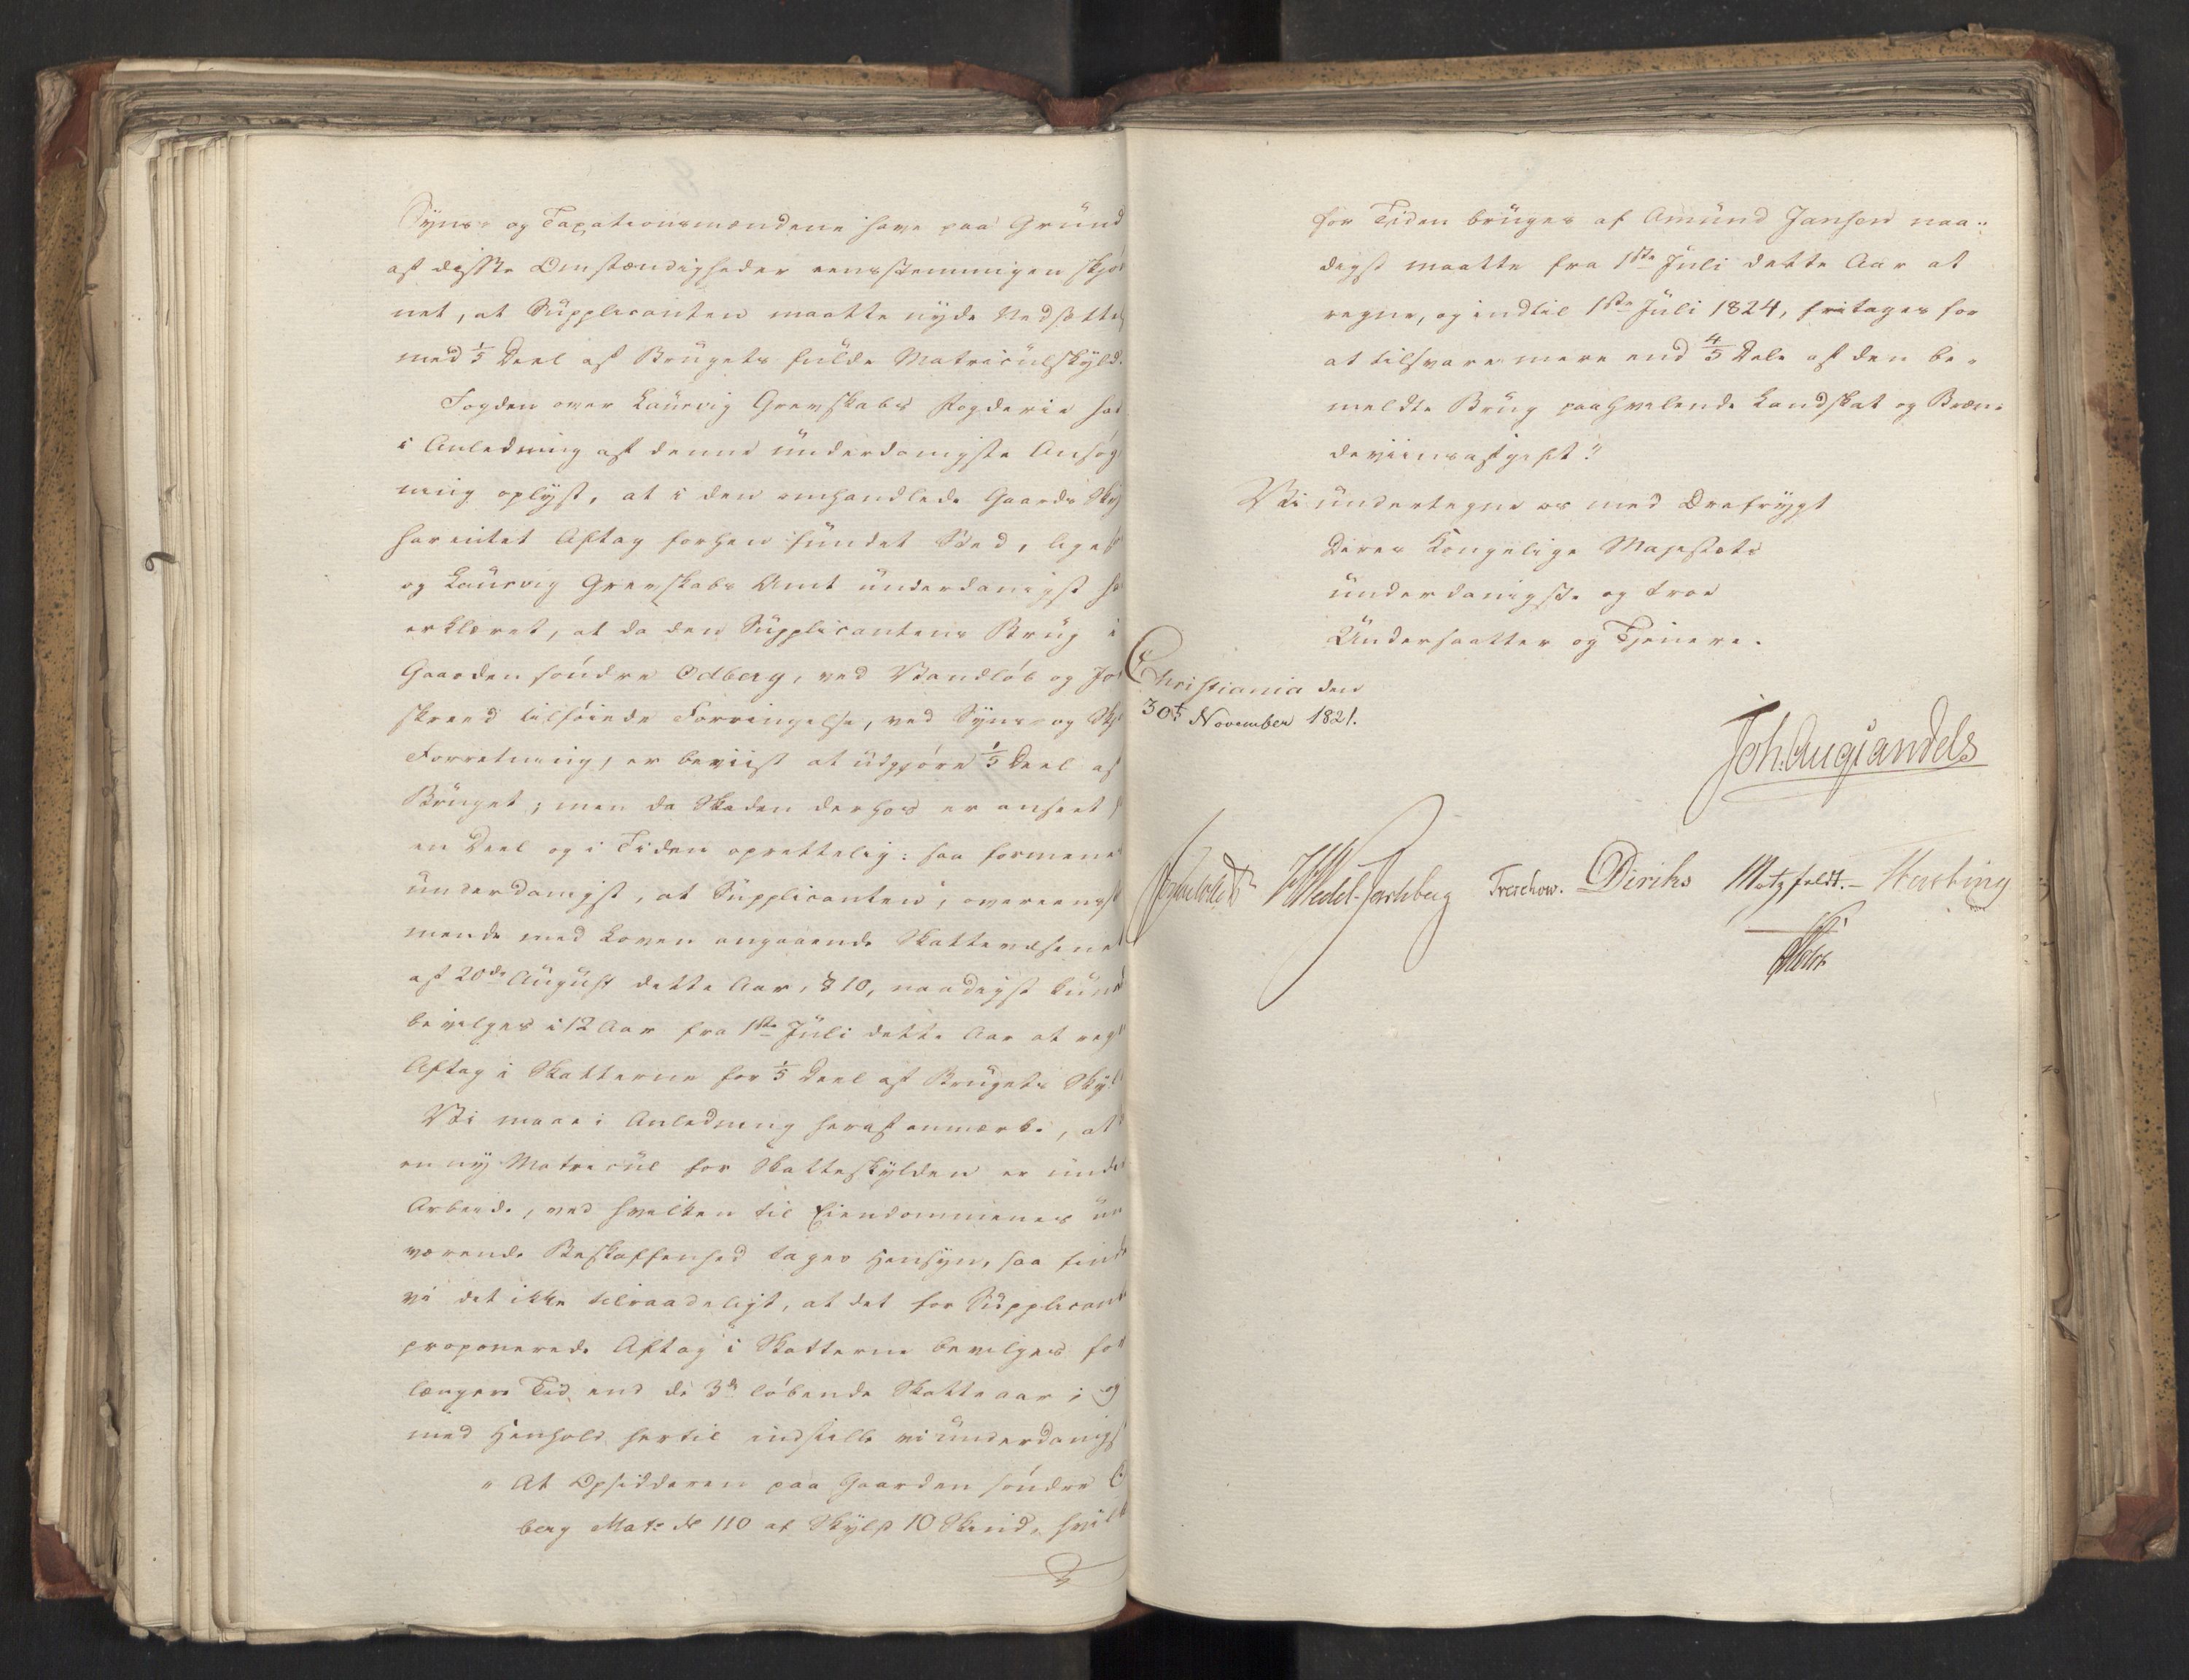 Syns- og Taxationsmændene have paa Grund
af disse Omstændigheder eensstemmigen skjøn
net, at Supplicanten maatte nyde Nedsættel
med 1/5 Deel af Brugets fulde Matriculskyld.
Fogden over Laurvig Grevskabs Fogderie har
i Anledning af denne underdanigste Ansøg
ning oplyst, at i den omhandlede Gaards Sky
har intet Aftag forhen fundet Sted, liges
og Laurvig Grevskabs Amt underdanigst ha
erklæret, at da den Supplicantens Brug i
Gaarden søndre Odberg, ved Vandløb og Jor
skreed tilføiede Forringelse, ved Syns- og Skj
Forretning, er beviist at udgjøre 1/5 Deel af
Bruget; men da Skaden derhos er anseet f
en Deel og i Tiden oprettelig: saa formene
underdanigst, at Supplicanten, overeenst
mende med Loven angaaende Skattevæsenet
af 20de August dette Aar, § 10, naadigst kund
bevilges i 12 Aar fra 1ste Juli dette Aar at regn
Aftag i Skatterne for 1/5 Deel af Brugets Skyld
Vi maae i Anledning heraf anmærke, at
en ny Matricul for Skatteskylden er under
Arbeide, ved hvilken til Eiendommenes nu
værende Beskaffenhed tages Hensyn, saa finde
vi det ikke tilraadeligt, at det for Supplicant
proponerede Aftag i Skatterne bevilges for
længere Tid end de 3de løbende Skatteaar; og
med Henhold hertil indstille vi underdanigst
" At Opsidderen paa Gaarden søndre O
berg Matr: No 110 af Skyld 10 Skind, hvilk
for Tiden bruges af Amund Jansen naa-
digst maatte fra 1ste Juli dette Aar at
regne, og indtil 1ste Juli 1824, fritages for
at tilsvare mere end 4/5 Dele af den be-
meldte Brug paahvilende Landskat og Bræn-
deviinsafgift."
Vi undertegne os med Ærefrygt
Deres Kongelige Majestæts
underdanigste og troe
Undersaatter og Tjenere.
Christiania den
30te November 1821.
Joh. Aug. Sandels
Sommerhielm HWedel-Jarlsberg Treschow. Diriks Motzfeldt.- Hasting